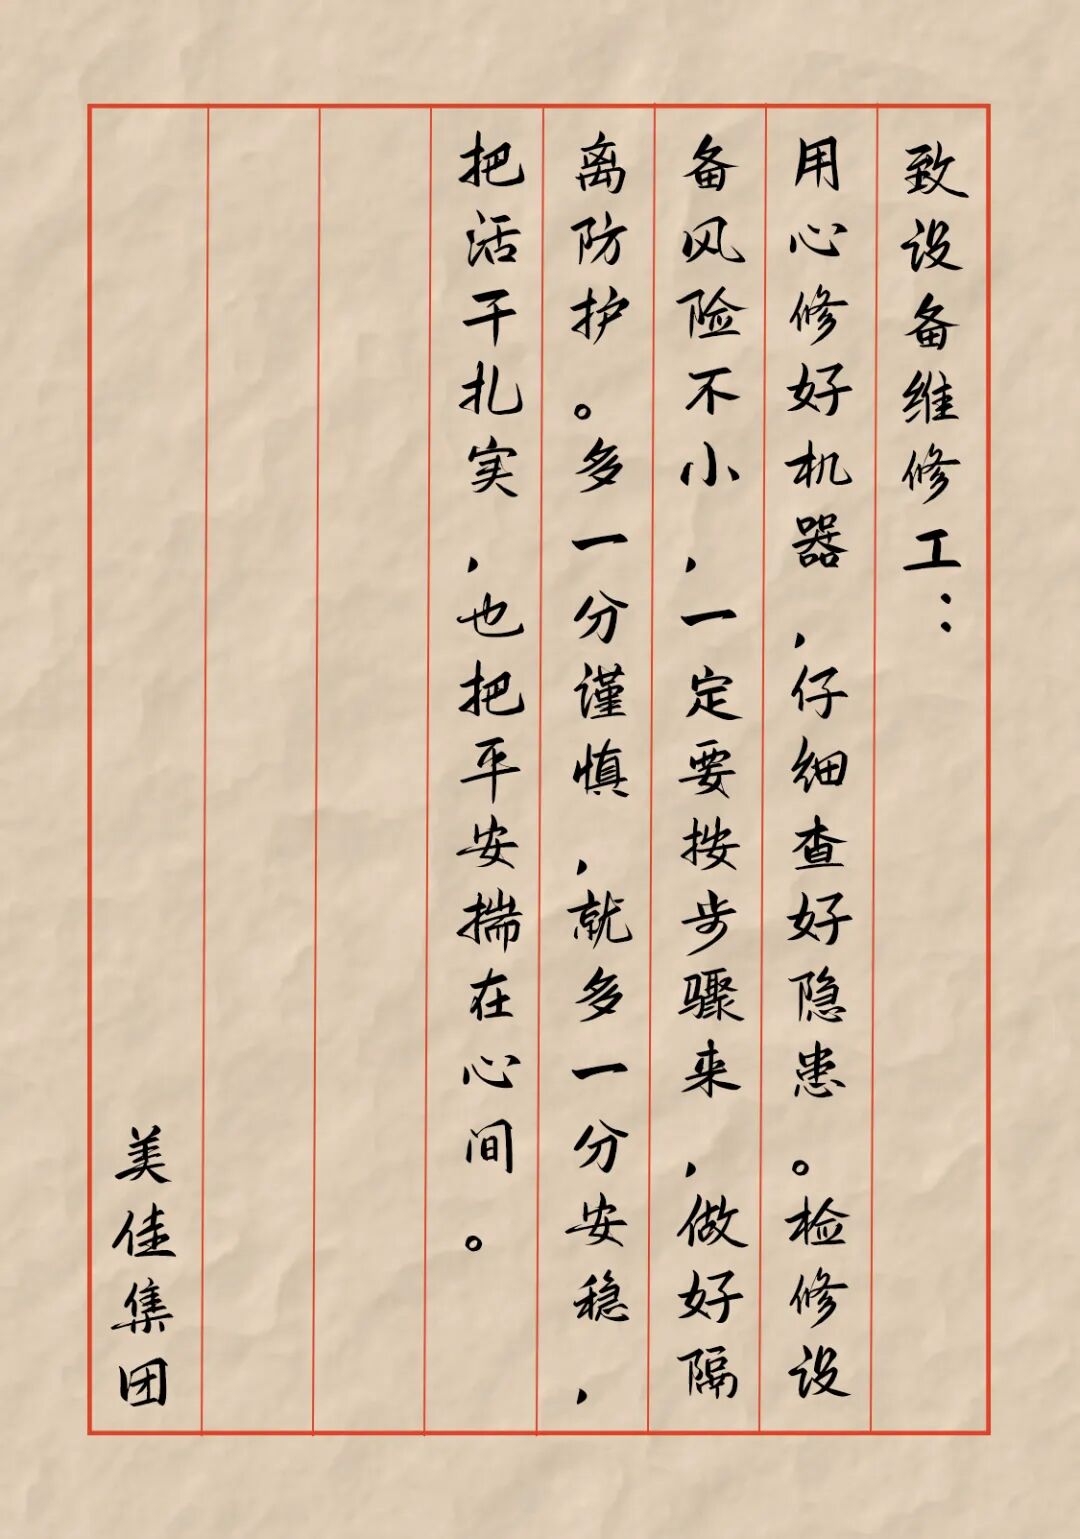 致设备维修工：
用心修好机器，仔细查好隐患。检修设
备风险不小，一定要按步骤来，做好隔
离防护。多一分谨慎，就多一分安稳，
把活干扎实，也把平安揣在心间。
美佳集团